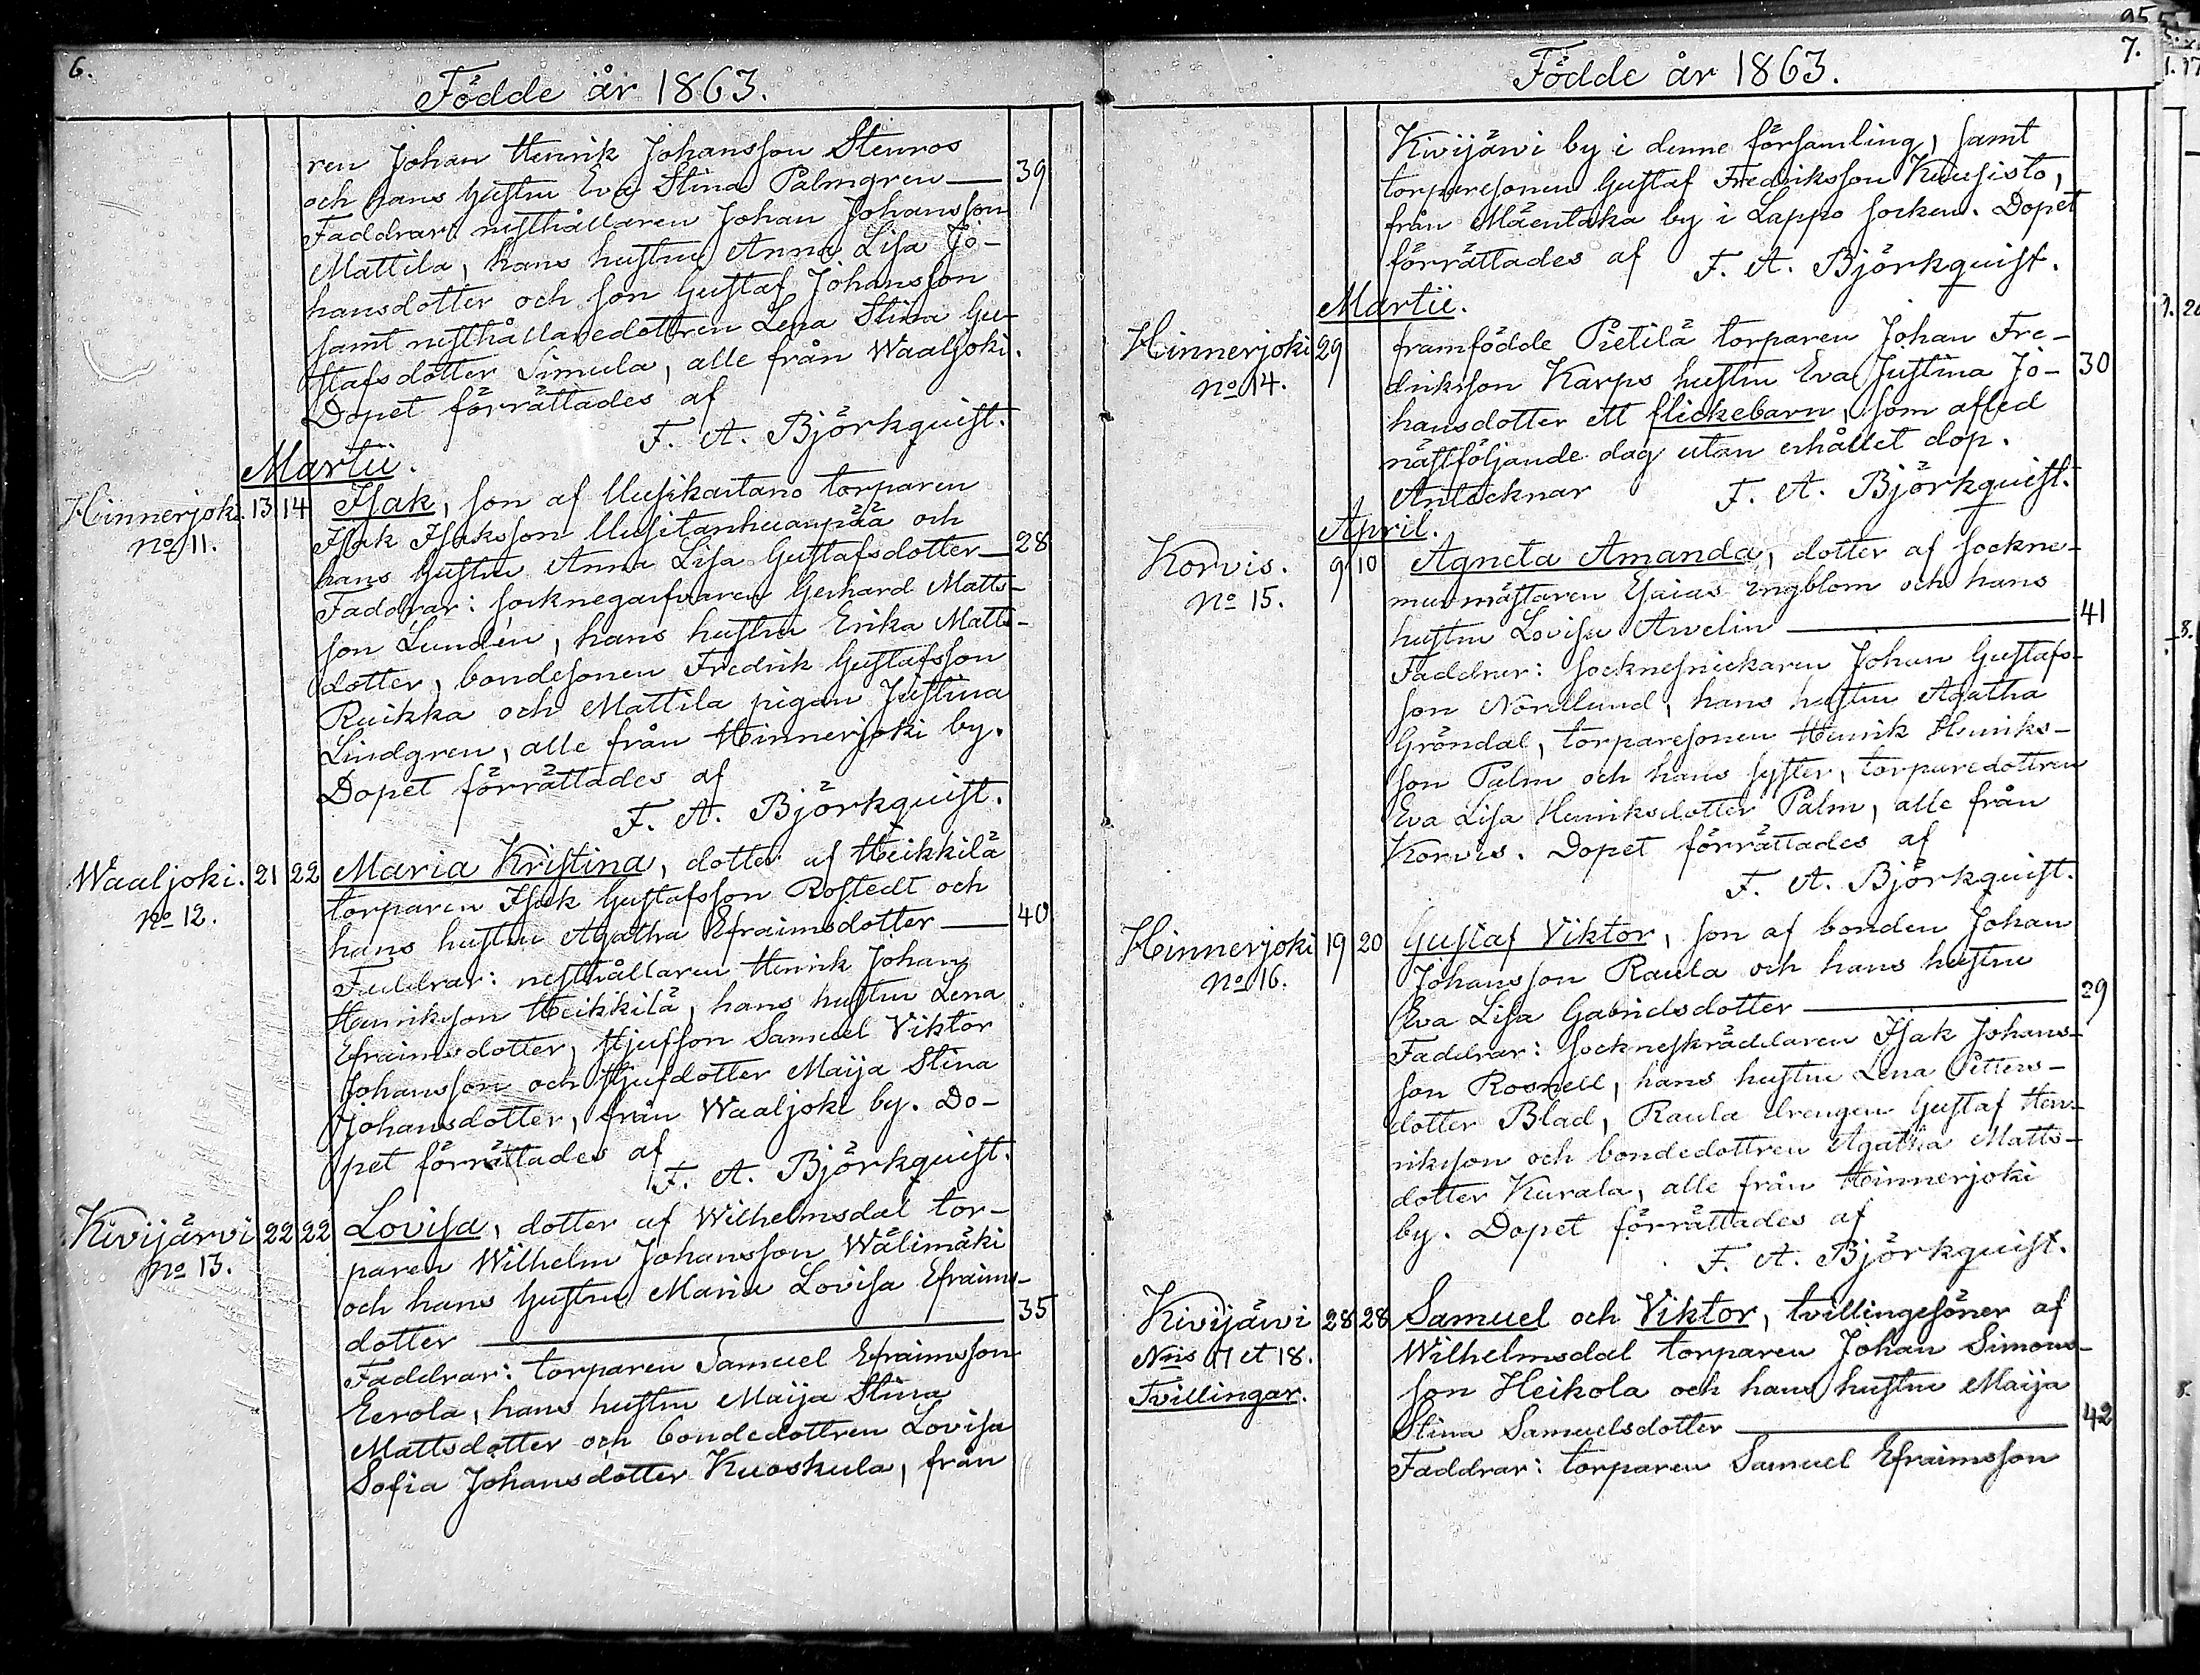 6.
Födde år 1863.
ren Johan Henrik Johansson Stenros
och hans hustru Eva Stina Palmgren — 39
Faddrar: rusthållaren Johan Johansson
Mattila, hans hustru Anna Lisa Jo-
hansdotter och son Gustaf Johansson
samt rusthållaredottren Lena Stina Gu-
stafsdotter Simula, alle från Waaljoki.
Dopet förrättades af
F. A. Björkquist.
Martii.
Hinnerjoki. 13 14 Isak, son af Uusikartano torparen
No 11. Isak Isaksson Uusitanhuanpää och
hans hustru Anna Lisa Gustafsdotter — 28
Faddrar: socknegarfvaren Gerhard Matts-
son Lundén, hans hustru Erika Matts-
dotter, bondesonen Fredrik Gustafsson
Ruikka och Mattila pigan Justina
Lindgren, alle från Hinnerjoki by.
Dopet förrättades af
F. A. Björkquist.
Waaljoki. 21 22 Maria Kristina, dotter af Heikkilä
No 12. torparen Isak Gustafsson Rostedt och
hans hustru Agatha Efraimsdotter — 40
Faddrar: rusthållaren Henrik Johan
Henriksson Heikkilä, hans hustru Lena
Efraimsdotter, stjufson Samuel Viktor
Johansson och stjufdotter Maija Stina
Johansdotter, från Waaljoki by. Do-
pet förrättades af
F. A. Björkquist.
Kivijärvi 22 22 Lovisa, dotter af Wilhelmsdal tor-
No 13. paren Wilhelm Johansson Wälimäki
och hans hustru Maria Lovisa Efraims-
dotter — 35
Faddrar: torparen Samuel Efraimsson
Eerola, hans hustru Maija Stina
Mattsdotter och bondedottren Lovisa
Sofia Johansdotter Kuoskula, från
7.
Födde år 1863.
Kivijärvi by i denne församling, samt
torparesonen Gustaf Fredriksson Kuusisto,
från Mäentaka by i Lappo socken. Dopet
förrättades af F. A. Björkquist.
Martii.
Hinnerjoki 29 framfödde Pietilä torparen Johan Fre-
No 14. driksson Karps hustru Eva Justina Jo- 30
hansdotter ett flickebarn, som afled
nästföljande dag utan erhållet dop.
Antecknar F. A. Björkquist.
April.
Korvis. 9 10 Agneta Amanda, dotter af sockne-
No 15. murmästaren Esaias Engblom och hans
hustru Lovisa Arvelin — 41
Faddrar: socknesnickaren Johan Gustafs-
son Nordlund, hans hustru Agatha
Gröndal, torparesonen Henrik Henriks-
son Palm och hans syster, torparedottren
Eva Lisa Henriksdotter Palm, alle från
Korvis. Dopet förrättades af
F. A. Björkquist.
Hinnerjoki 19 20 Gustaf Viktor, son af bonden Johan
No 16. Johansson Raula och hans hustru
Eva Lisa Gabrielsdotter — 29
Faddrar: sockneskräddaren Isak Johans-
son Rosnell, hans hustru Lena Petters-
dotter Blad, Raula drengen Gustaf Hen-
riksson och bondedottren Agatha Matts-
dotter Kurala, alle från Hinnerjoki
by. Dopet förrättades af
F. A. Björkquist.
Kivijärvi 28 28 Samuel och Viktor, tvillingesöner af
Nris 17 et 18. Wilhelmsdal torparen Johan Simons-
Tvillingar. son Heikola och hans hustru Maija
Stina Samuelsdotter — 42
Faddrar: torparen Samuel Efraimsson